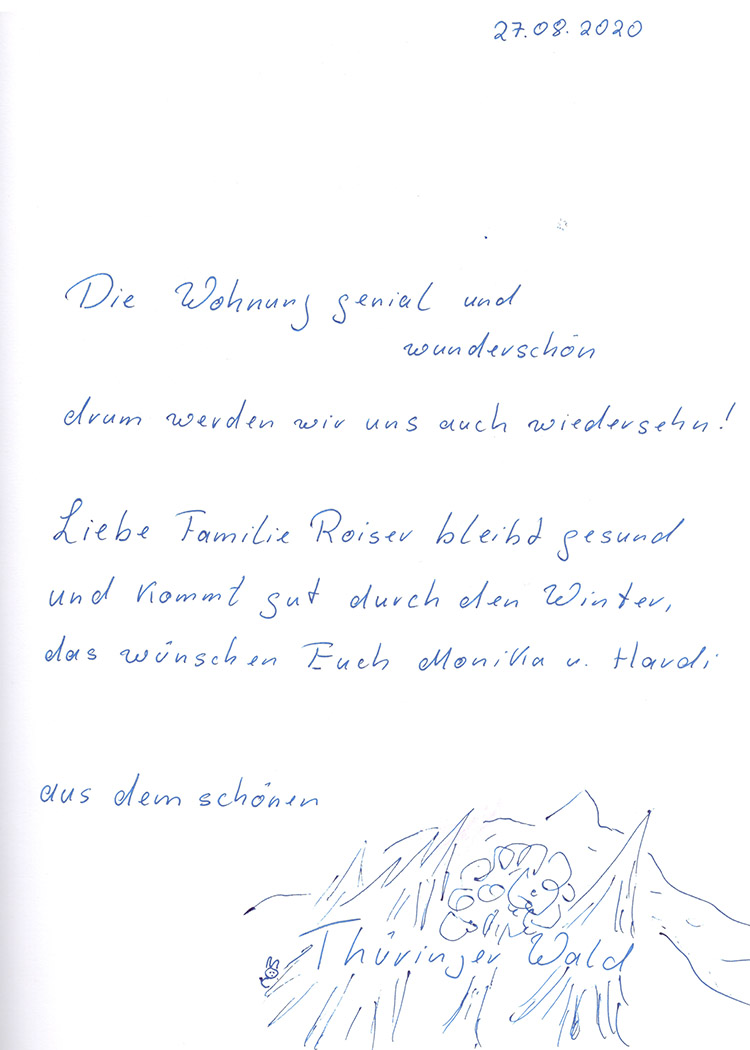 27.08.2020
Die Wohnung genial und
wunderschön
drum werden wir uns auch wiedersehn!
Liebe Familie Roiser bleibt gesund
und kommt gut durch den Winter,
das wünschen Euch Monika u. Hardi
aus dem schönen
Thüringer Wald